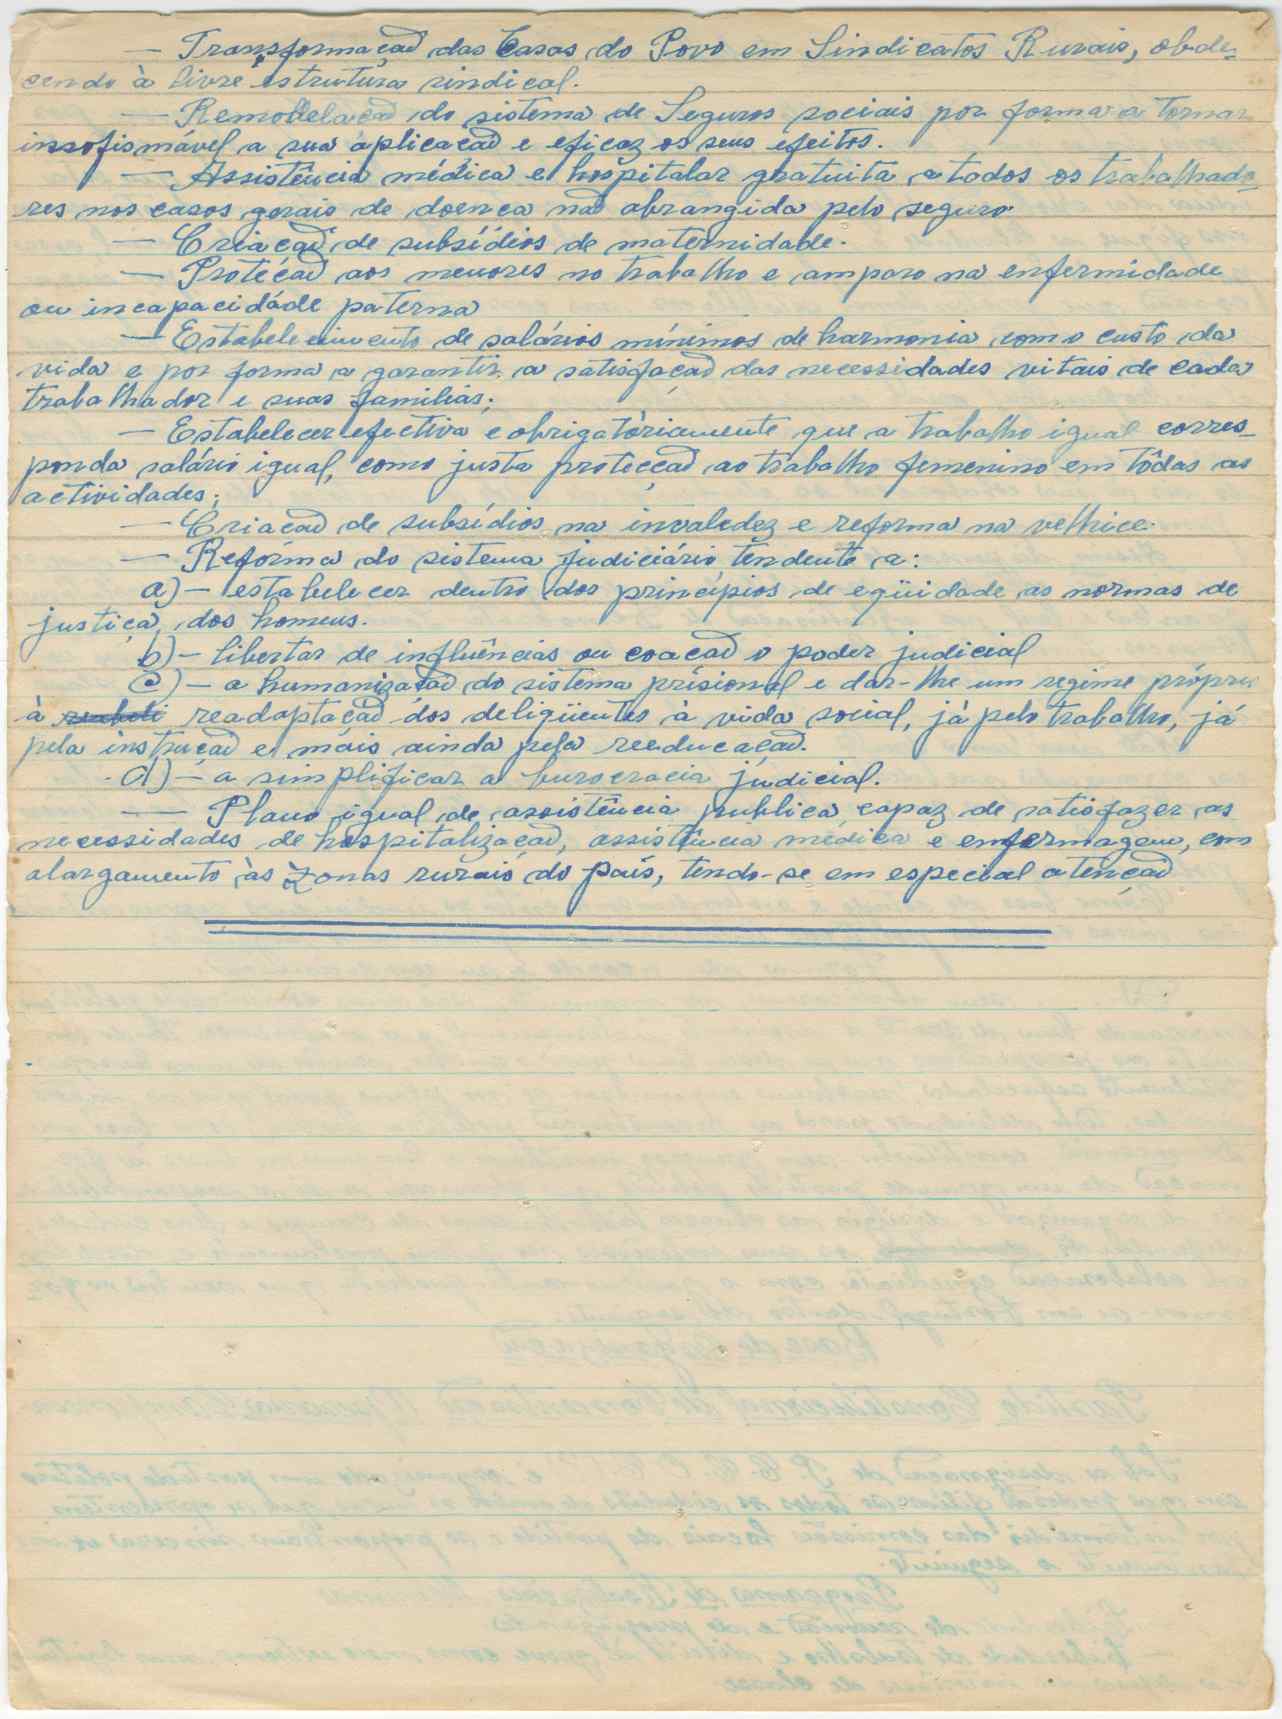 — Transformação das Casas do Povo em Sindicatos Rurais, obde-
cendo à livre estrutura sindical.
— Remodelação do sistema de Seguros sociais por forma a tornar
insofismável a sua aplicação e eficaz os seus efeitos.
— Assistência médica e hospitalar gratuita a todos os trabalhado-
res nos casos gerais de doença não abrangida pelo seguro
— Criação de subsídios de maternidade.
— Protéção aos menores no trabalho e amparo na enfermidade
ou incapacidáde paterna
— Estabelecimento de salários mínimos de harmonia com o custo da
vida e por forma a garantir a satisfação das necessidades vitais de cada
trabalhador e suas familias;
— Estabelecer efectiva e obrigatòriamente que a trabalho igual corres-
ponda salário igual, como justa protecção ao trabalho femenino em tôdas as
actividades;
— Criação de subsídios na invaledez e reforma na velhice.
— Refórma do sistema judiciário tendente a:
a) — estabelecer dentro dos princípios de eqüidade as normas de
justiça dos homens.
b) — libertar de influências ou coação o poder judicial
c) — a humanização do sistema prisional e dar-lhe um regime próprio
à reabeli readaptação dos deliqüentes à vida social, já pelo trabalho, já
pela instrução e mais ainda pela reeducação.
d) — a simplificar a burocracia judicial.
— Plano igual de assistência publica capaz de satisfazer as
necessidades de hospitalização, assistência médica e enfermagem, com
alargamento às zonas rurais do país, tendo-se em especial atenção